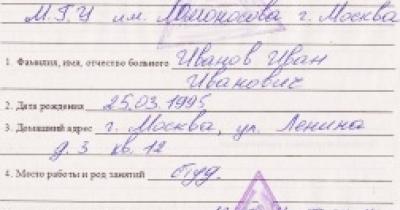 М.Г.У им. Ломоносова г. Москва
1. Фамилия, имя, отчество больного Иванов Иван
Иванович
2. Дата рождения 25.03.1995
3. Домашний адрес г. Москва, ул. Ленина
д. 3 кв. 12
4. Место работы и род занятий студ.